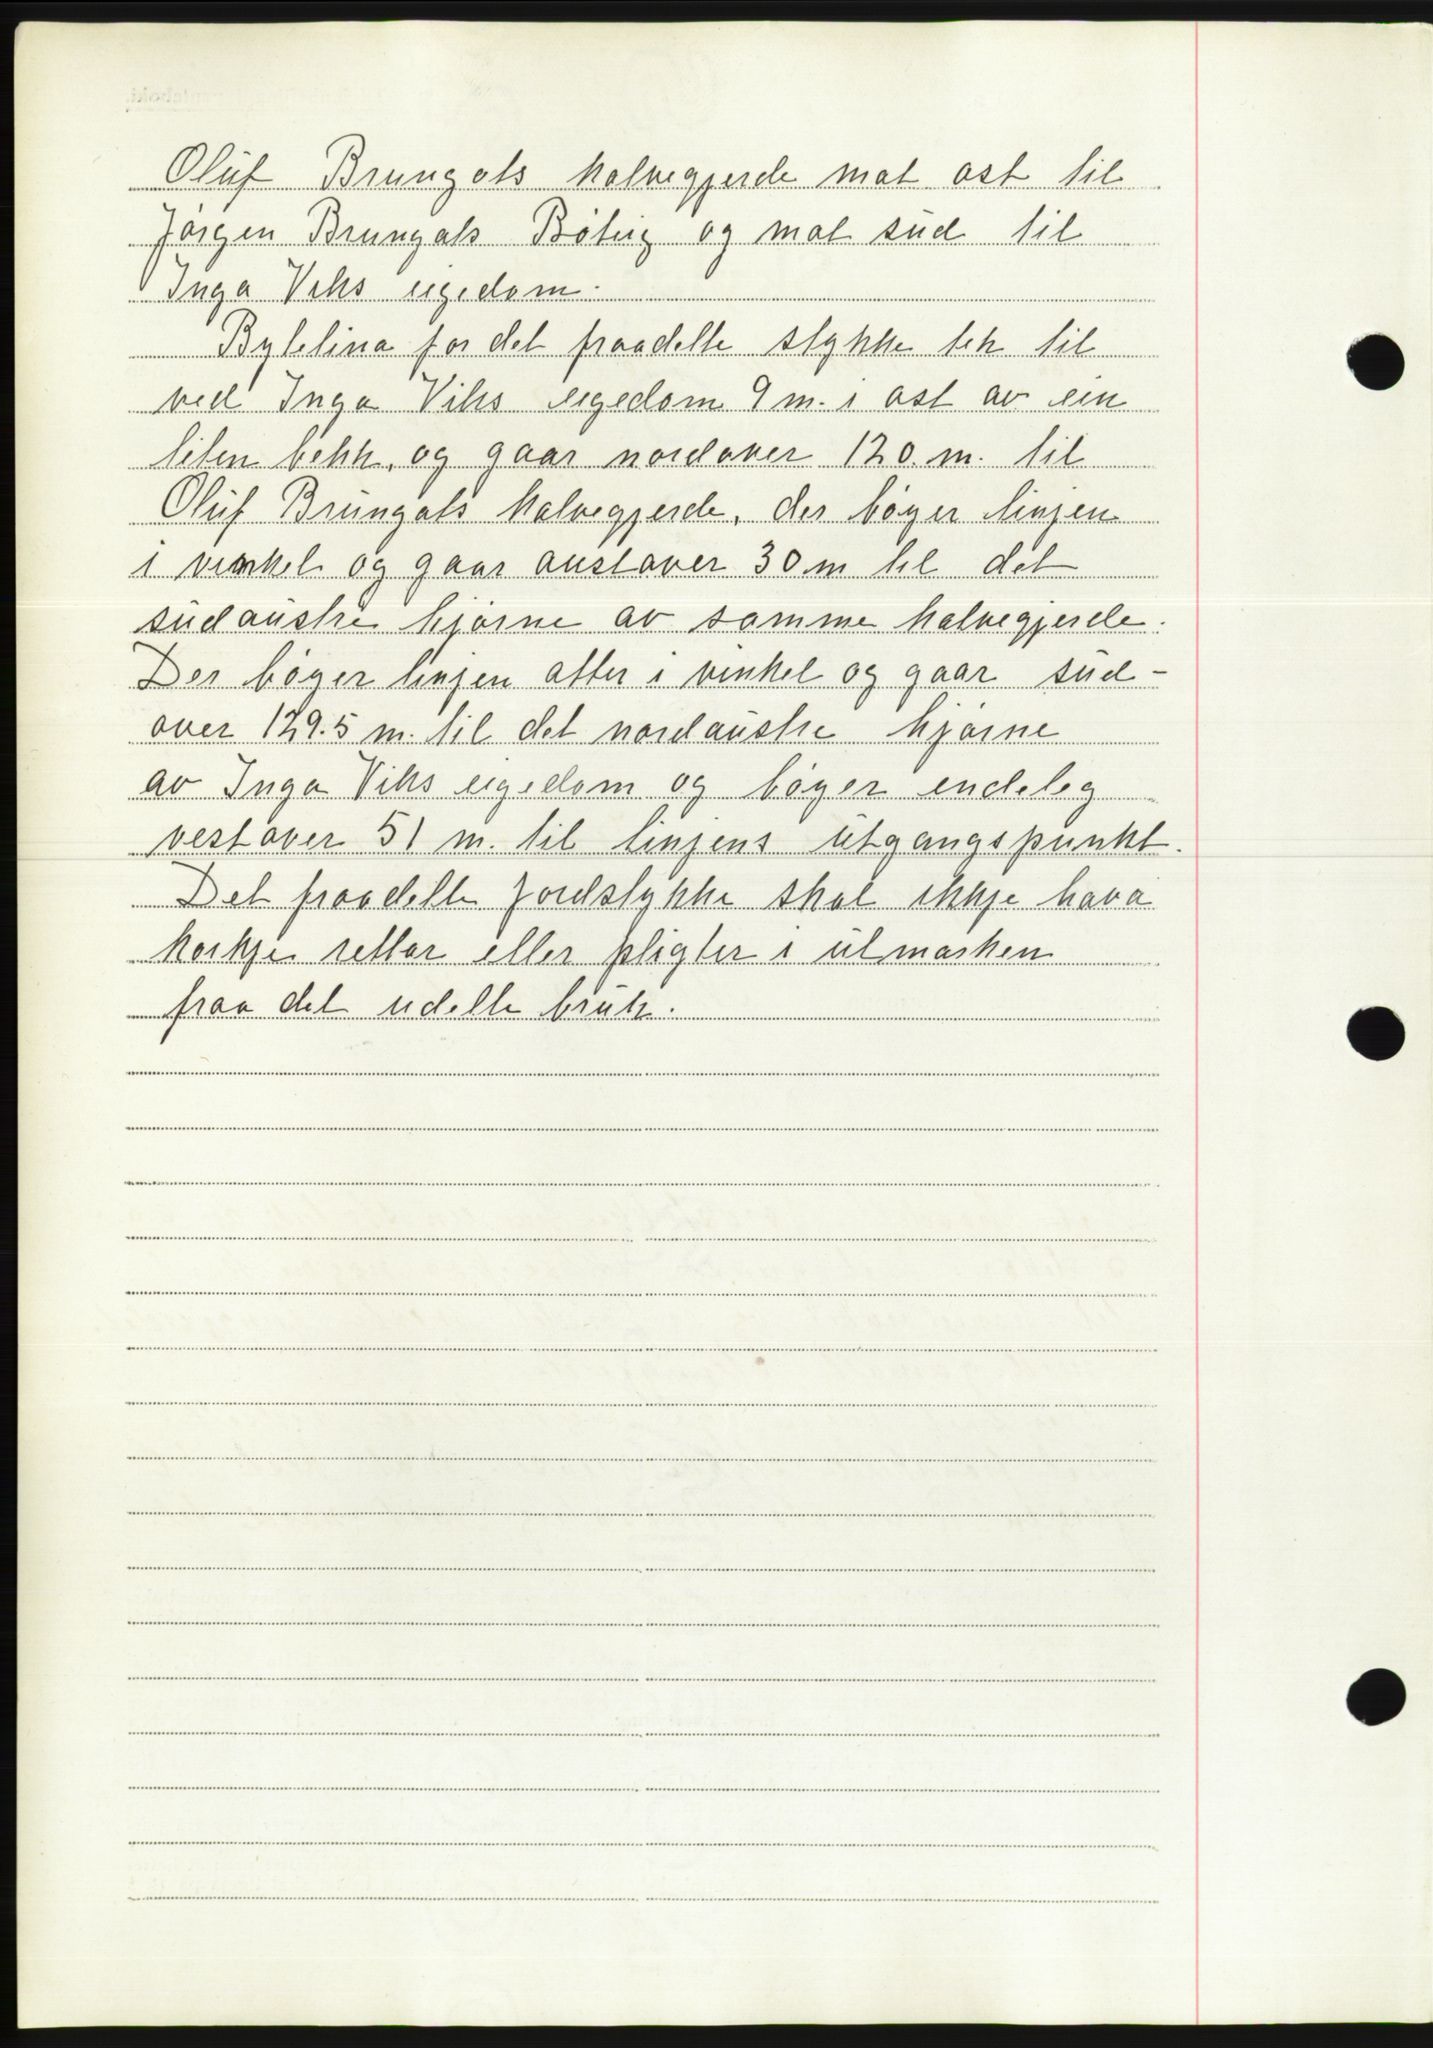 Oluf Brungots kalvegjerde mot ost til
Jörgen Brungots Böteig og mot süd til
Inga Viks eigedom.
Bytelina for det fraadelte stykke tek til
ved Inga Viks eigedom 9 m. i ost av ein
liten bekk, og gaar nordover 120. m. til
Oluf Brungots kalvegjerde, der böyer linjen
i vinkel og gaar austover 30 m til det
südaustre hjörne av samme kalvegjerde.
Der böyer linjen atter i vinkel og gaar süd-
over 129.5 m. til det nordaustre hjörne
av Inga Viks eigedom og böyer endeleg
vestover 51 m. til linjens utgangspunkt.
Det fraadelte jordstykke skal ikkje hava
korkje rettar eller pligter i utmarken
fraa det udelte bruk.